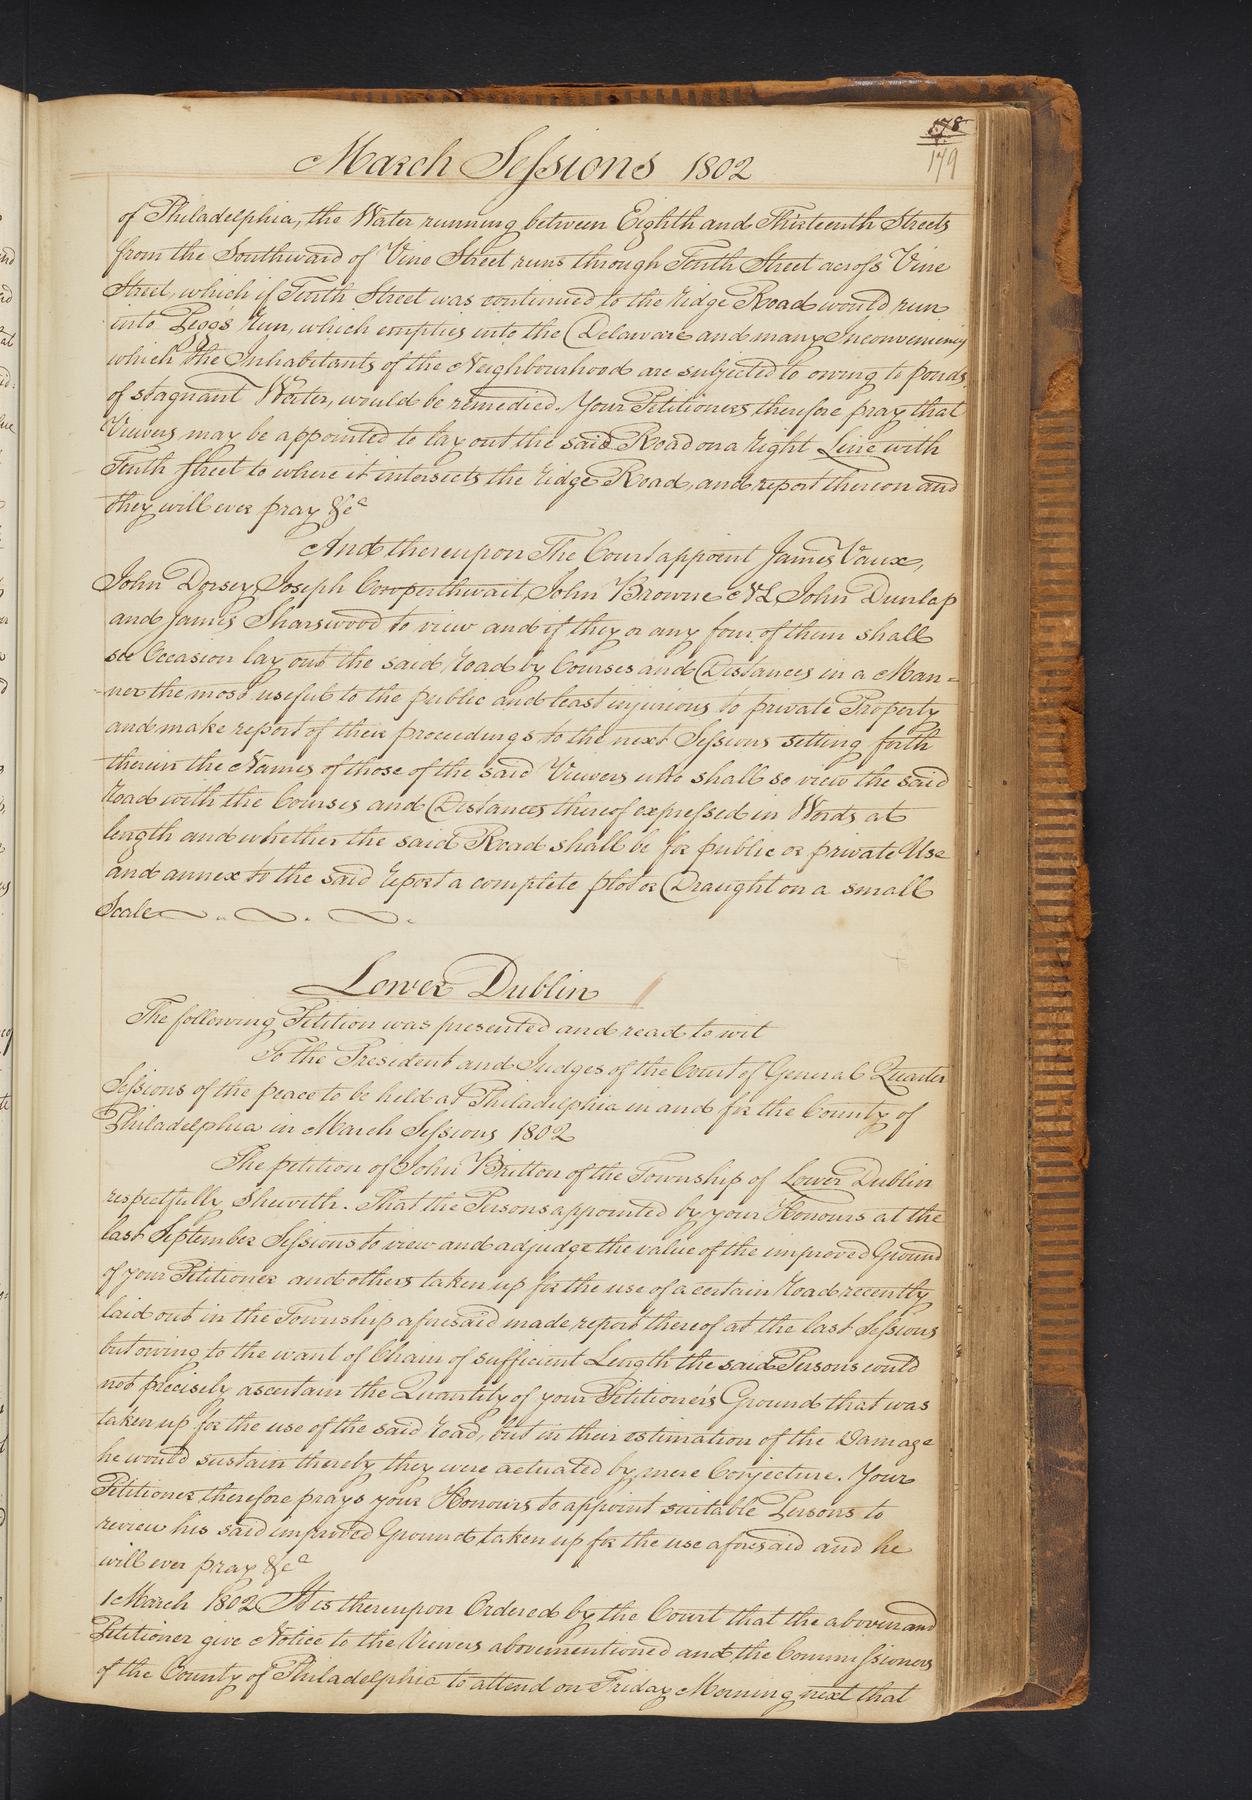 178
179
March Sessions 1802
of Philadelphia, the Water running between Eighth and Thirteenth Streets
from the Southward of Vine Street runs through Tenth Street across Vine
Street, which if Tenth Street was continued to the ridge Road would run
into Pegg's Run, which empties into the Delaware and many Inconveniency
which the Inhabitants of the Neighbourhood are subjected to owing to ponds
of stagnant Water, would be remedied. Your Petitioners therefore pray that
Viewers may be appointed to lay out the said Road on a right Line with
Tenth Street to where it intersects the ridge Road, and report thereon and
they will ever pray &c
And thereupon The Court appoint James Vaux,
John Dorsey, Joseph Cowperthwait, John Browne NL John Dunlap
and James Sharswood to view and if they or any four of them shall
see Occasion lay out the said road by Courses and Distances in a Man=
=ner the most useful to the public and least injurious to private Property
and make report of their proceedings to the next Sessions setting forth
therein the Names of those of the said Viewers who shall so view the said
road with the Courses and Distances thereof expressed in Words at
length and whether the said Road shall be for public or private Use
and annex to the said report a complete plot or Draught on a small
Scale
Lower Dublin
The following Petition was presented and read to wit
To the President and Judges of the Court of General Quarter
Sessions of the peace to be held at Philadelphia in and for the County of
Philadelphia in March Sessions 1802
The petition of John Britton of the Township of Lower Dublin
respectfully Sheweth. That the Persons appointed by your Honours at the
last September Sessions to view and adjudge the value of the improved Ground
of your Petitioner and others taken up for the use of a certain road recently
laid out in the Township aforesaid made report thereof at the last Sessions
but owing to the want of Chain of sufficient Length the said Persons could
not precisely ascertain the Quantity of your Petitioner's Ground that was
taken up for the use of the said road, but in their estimation of the Damage
he would sustain thereby they were actuated by mere Conjecture. Your
Petitioner therefore prays your Honours to appoint suitable Persons to
review his said improved Ground taken up for the use aforesaid and he
will ever pray &c
1 March 1802 It is thereupon Ordered by the Court that the above
Petitioner give Notice to the Viewers abovementioned and the Commissioners
of the County of Philadelphia to attend on Friday Morning next that